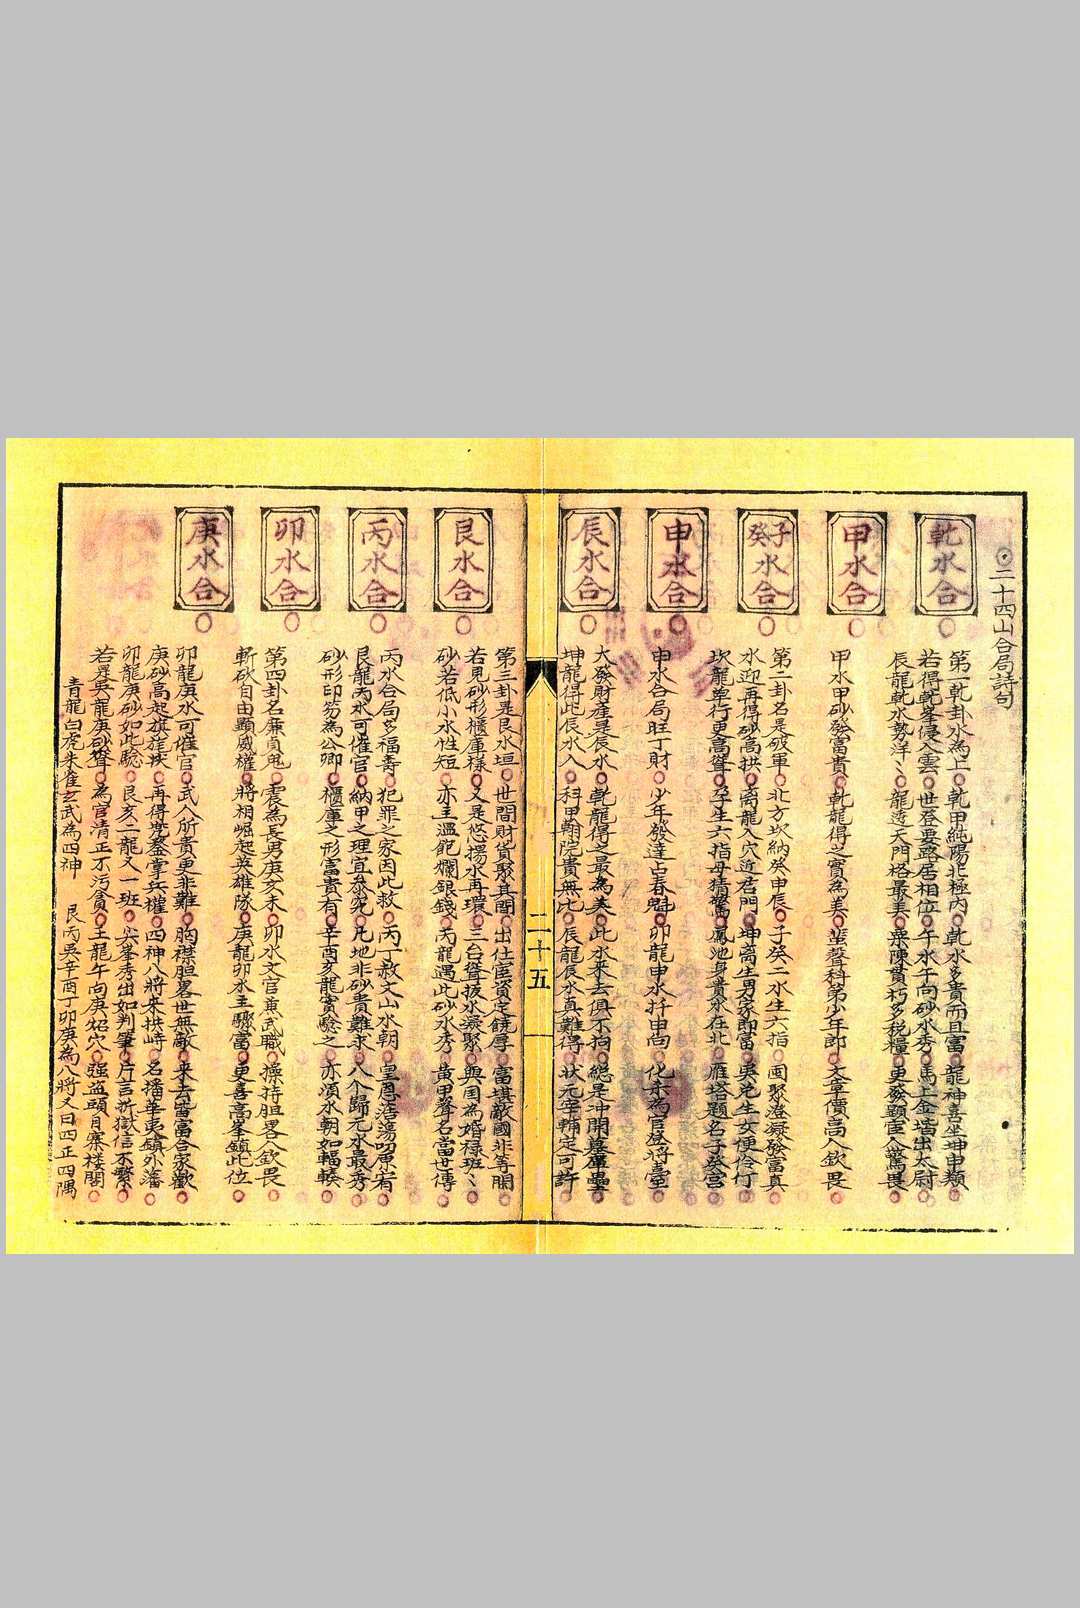 二十四山合局詩句
乾水合
第一乾卦水為上○乾甲純陽北極內○乾水多貴而且富○龍神喜坐坤申類○
若得乾峯侵入雲○世登要路居相位○午水午向砂水秀○馬上金堦出太尉○
辰龍乾水勢洋〻○龍透天門格最美○粟陳貫朽多稅糧○更發顯宦人驚畏○
甲水合
甲水甲砂發富貴○乾龍得之實為美○蜚聲科第少年郎○文章價高人欽畏○
子癸水合
第二卦名是破軍○北方坎納癸申辰○子癸二水生六指○囤聚澄凝發富真○
水迎再得砂高拱○离龍入穴近君門○坤萵生男家即富○吳兌生女便伶仃○
坎龍單行更高聳○孕生六指母猜驚○鳳池身貴水在北○雁塔題名子癸宮○
申水合
申水合局旺丁財○少年發達占春魁○卯龍申水扦申向○化未為官登將臺○
辰水合
大發財產是辰水○乾龍得之最為美○此水來去俱不拘○總是冲開墓庫疊○
坤龍得此辰水入○科甲翰院貴無比○辰龍辰水真難得○狀元宰輔定可許
艮水合
第三卦是艮水垣○世間財貨聚其間○出仕宦資足饒厚○富堪敵國非等閒
若見砂形櫃庫樣○又是悠揚水再環○三台聳拔水凝聚○與国為婚祿班〻○
砂若低小水性短○亦主溫飽爛銀錢○丙龍遇此砂水秀○黃甲聲名當世傳
丙水合
丙水合局多福壽○犯罪之家因此赦○丙丁赦文山水朝○皇恩浩蕩叨原宥
艮龍丙水可催官○納甲之理宜叅究○凡地非砂貴難求○八个歸元水最秀○
砂形印笏為公卿○櫃庫之形富貴有○辛酉亥龍實驗之○亦須水朝如輻輳
卯水合
第四卦名廉貞鬼○震為長男庚亥未○卯水文官兼武職○操持胆畧人欽畏
斬砍自由顯威權○將相崛起英雄隊○庚龍卯水主驟富○更喜高峯鎮此位○
庚水合
卯龍庚水可催官○武人所貴更非難○胸襟胆畧世無敵○來去富富合家歡
庚砂高起旗旌疾○再得兜鍪掌兵權○四神八將來拱峙○名播華夷鎮外藩
卯龍庚砂如此驗○艮亥二龍又一班○兴峯秀出如判筆○片言折獄信不繁
若是吳龍庚砂聳○為官清正不污貪○主龍午向庚焰穴○強盜頭目寨楼閣
青龍白虎朱雀玄武為四神 艮丙吳辛酉丁卯庚為八將又曰四正四隅
二十五